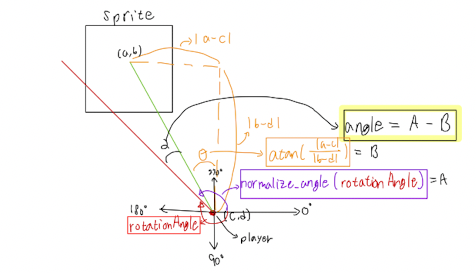 sprite
(a,b)
|a-c|
|b-d|
angle = A - B
d
θ
atan(|a-c|/|b-d|) = B
normalize_angle(rotationAngle) = A
270°
180°
0°
(c,d)
rotationAngle
player
90°